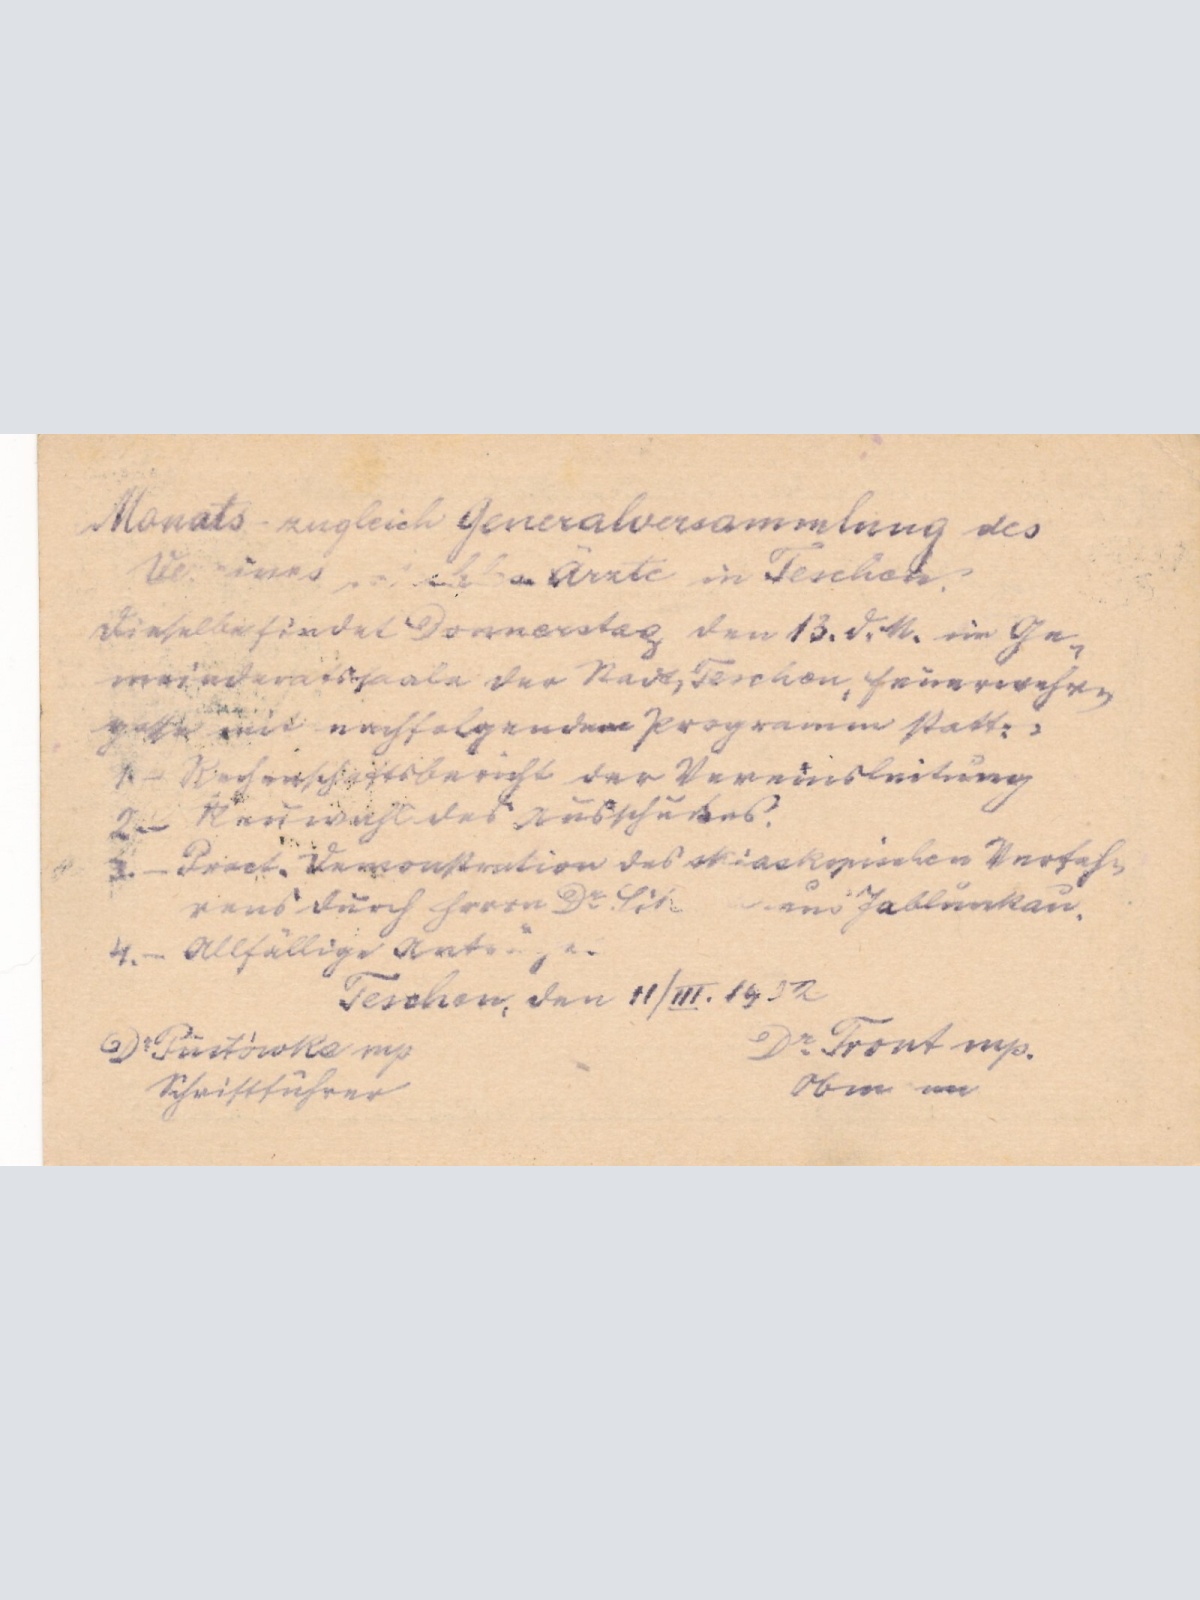 Monats - zugleich Generalversammlung des
Vereines Ärzte in Teschen.
Dieselbe findet Donnerstag den 13. d. M. im Ge-
meinderatssaale der Stadt Teschen, Feuerwehr-
gasse mit nachfolgendem Programm statt:
1.- Rechenschaftsbericht der Vereinsleitung
2.- Neuwahl des Ausschußes.
3.- Pract. Demonstration des skiaskopischen Verfah-
rens durch Herrn Dr. aus Jablunkau.
4.- Allfällige Anträge.
Teschen, den 11/III. 19
Dr. Pustówka mp
Dr. Front mp.
Schriftführer
Obmann